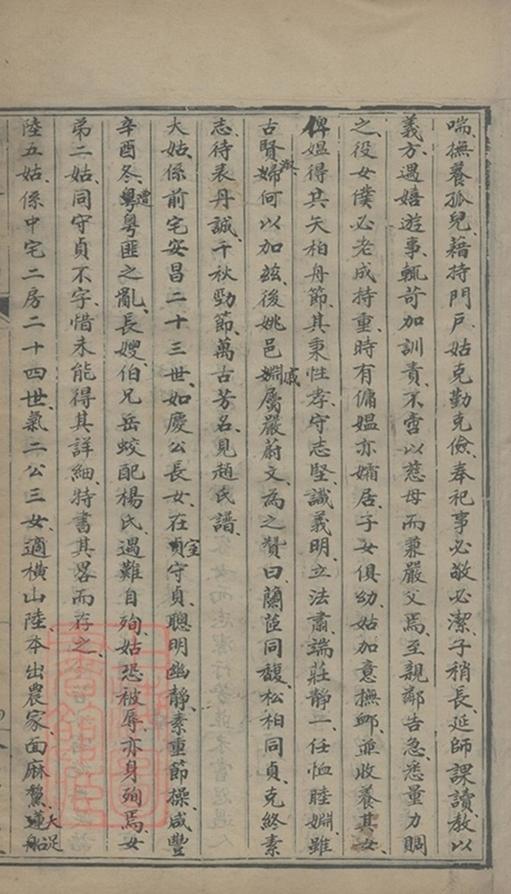 喘、撫養孤兒、藉持門戶、姑克勤克儉、奉祀事必敬必潔、子稍長延師課讀、教以
義方、遇嬉遊事、輒苛加訓責、不啻以慈母而兼嚴父焉、至親鄰告急、悉量力賙
之、役女僕必老成持重、時有傭媼亦孀居、子女俱幼、姑加意撫卹、並收養其女、
俾媼得其矢柏舟節、其秉性孝、守志堅、識義明、立法肅、端莊靜一、任恤睦婣、雖
古賢淑婦何以加茲、後姚邑婣戚屬嚴蔚文、為之贊曰、蘭茝同馥、松柏同貞、克終素
志、待表丹誠、千秋勁節、萬古芳名、見趙氏譜、
大姑、係前宅安昌二十三世、如慶公長女、在室守貞、聰明幽靜、素重節操、咸豐
辛酉冬、遭粵匪之亂、長嫂、伯兄岳蛟配楊氏、遇難自殉、姑恐被辱、亦身殉焉、女
弟二姑、同守貞不字、惜未能得其詳細、特書其畧而存之、
陸五姑、係中宅二房二十四世、氣二公三女、適橫山陸、本出農家、面麻鰲、大足船